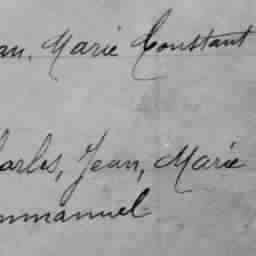 an, Marie Constant
harles, Jean, Marie
mmanuel